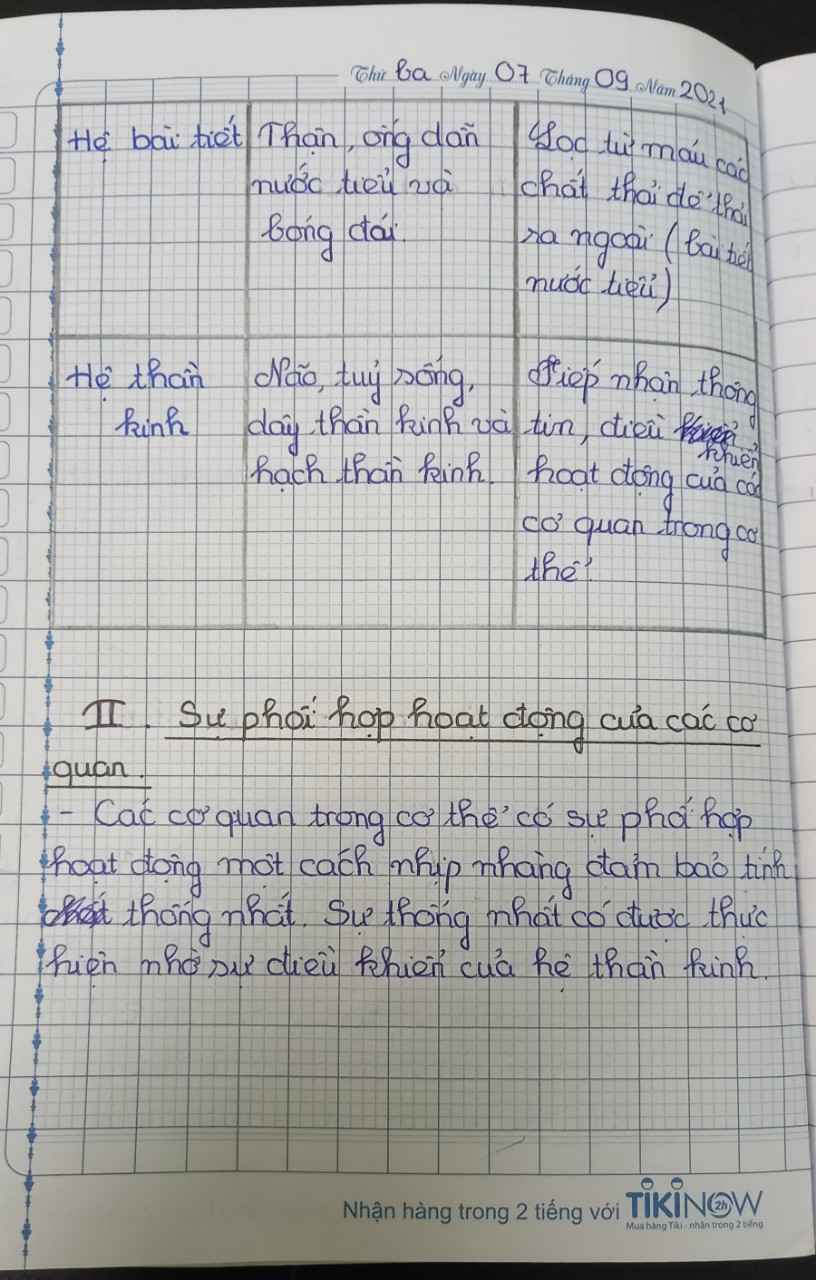 Thứ Ba Ngày 07 Tháng 09 Năm 2021
Hệ bài tiết
Thận, ống dẫn
nước tiểu và
bóng đái.
Lọc từ máu các
chất thải để thải
ra ngoài (bài tiết
nước tiểu)
Hệ thần
kinh
Não, tuỷ sống,
dây thần kinh và
hạch thần kinh.
Tiếp nhận thông
tin, điều
khiển
hoạt động của các
cơ quan trong cơ
thể.
II. Sự phối hợp hoạt động của các cơ
quan.
- Các cơ quan trong cơ thể có sự phối hợp
hoạt động một cách nhịp nhàng đảm bảo tính
thống nhất. Sự thống nhất có được thực
hiện nhờ sự điều khiển của hệ thần kinh.
Nhận hàng trong 2 tiếng với TIKINOW
2h
Mua hàng Tiki - nhận trong 2 tiếng